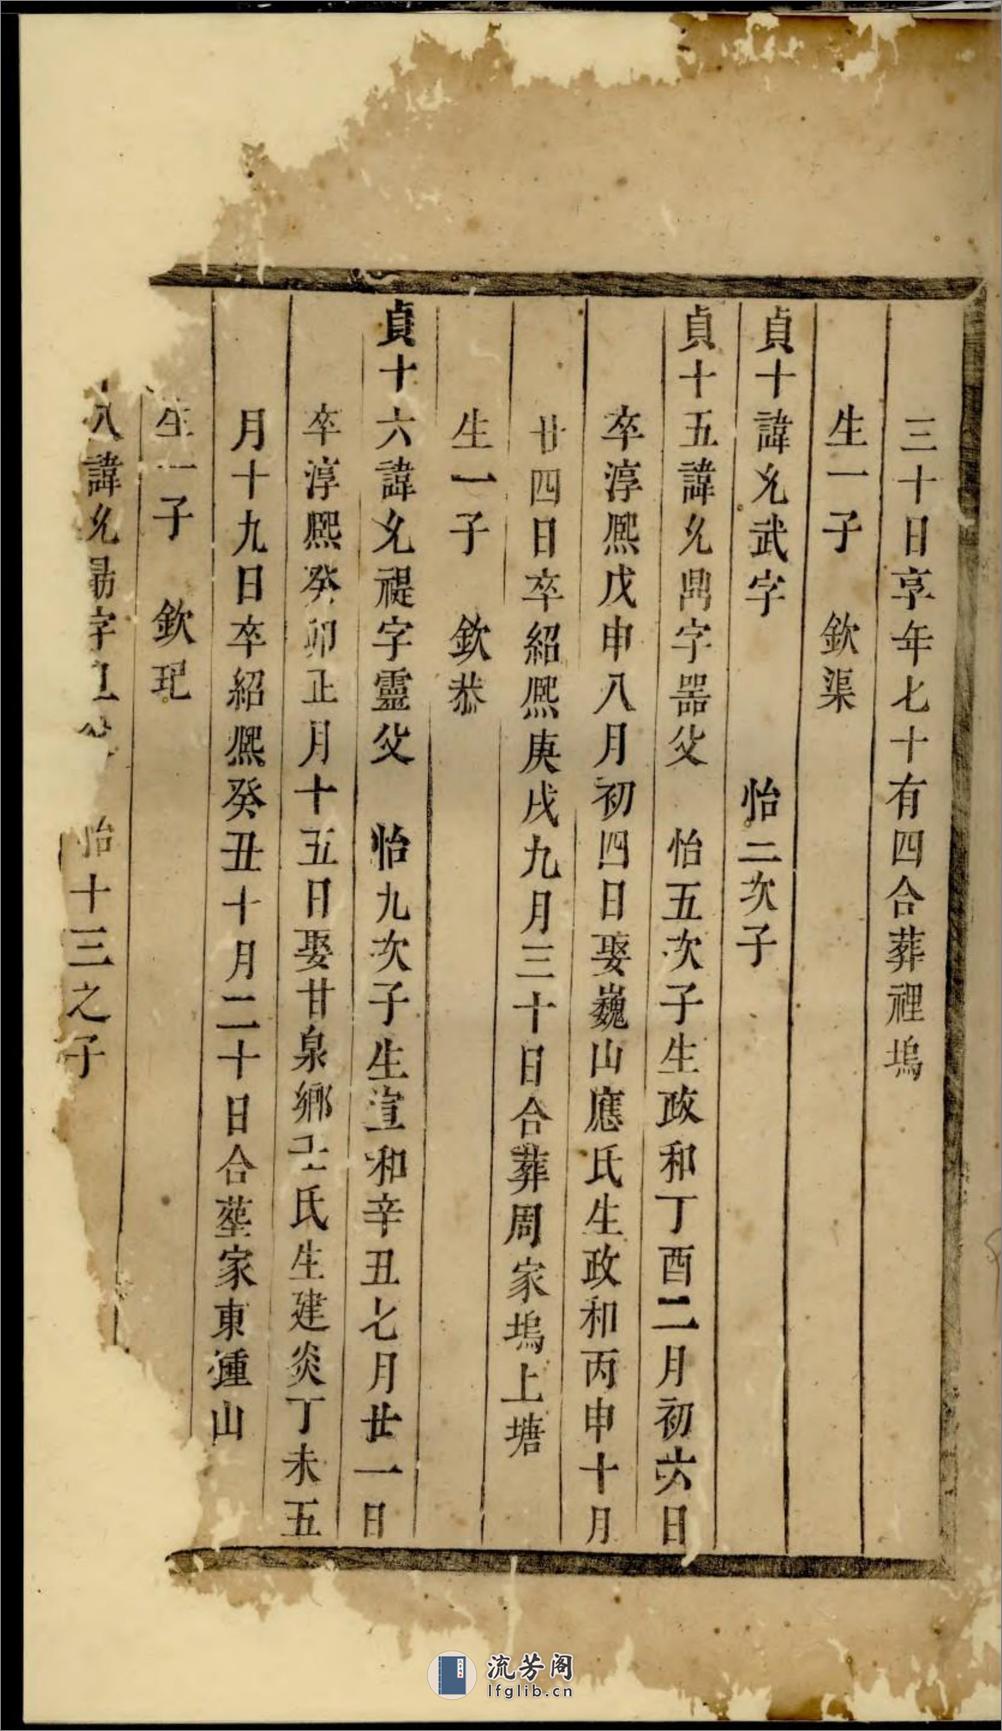 三十日享年七十有四合葬裡塢
生一子　欽渠
貞十諱允武字　怡二次子
貞十五諱允鼎字器父　怡五次子生政和丁酉二月初六日
卒淳熙戊申八月初四日娶巍山應氏生政和丙申十月
廿四日卒紹熙庚戌九月三十日合葬周家塢上塘
生一子　欽恭
貞十六諱允禔字靈父　怡九次子生宣和辛丑七月廿一日
卒淳熙癸卯正月十五日娶甘泉鄉氏生建炎丁未五
月十九日卒紹熙癸丑十月二十日合塟家東湩山
生一子　欽玘
八諱允字　怡十三之子
流芳阁
lfglib.cn